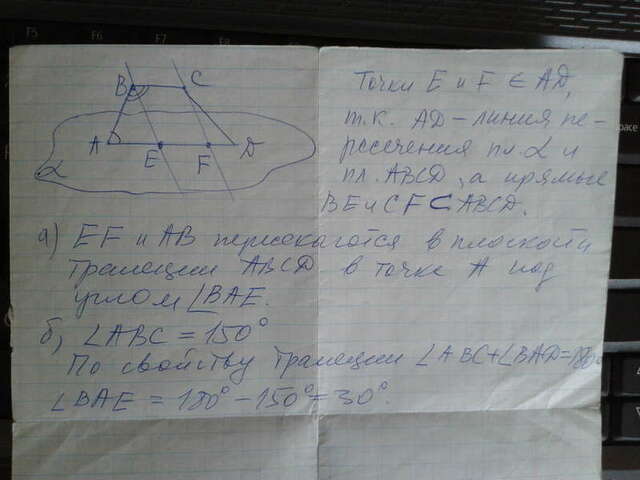 F5
F6
F7
F8
B
C
A
E
F
D
α
Точки E и F ∈ AD,
т.к. AD – линия пе-
ресечения пл. α и
пл. ABCD, а прямые
BE и CF ⊂ ABCD.
а) EF и AB пересекаются в плоскости
трапеции ABCD в точке A под
углом ∠BAE.
б) ∠ABC = 150°
По свойству трапеции ∠ABC+∠BAD=180°
∠BAE = 180° – 150° = 30°.